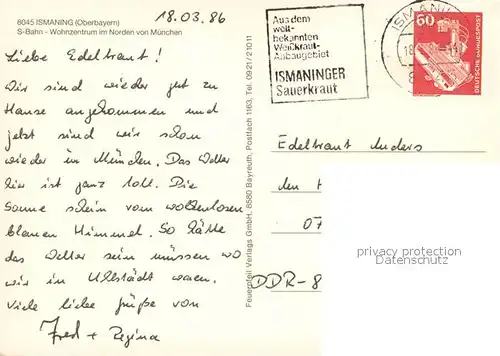 8045 ISMANING (Oberbayern)
S-Bahn - Wohnzentrum im Norden von München
18.03.86
Liebe Edeltraut!
Wir sind wieder gut zu
Hause angekommen und
jetzt sind wir schon
wieder in München. Das Wetter
hier ist ganz toll. Die
Sonne schein vom wolkenlosen
blauen Himmel. So hätte
das Wetter sein müssen wo
wir in Uhlstädt waren.
Viele liebe Grüße von
Fred + Regina
Feuerpfeil Verlags GmbH, 8580 Bayreuth, Postfach 1163, Tel. 0921/21011
Aus dem
welt-
bekannten
Weißkraut-
Anbaugebiet
ISMANINGER
Sauerkraut
ISMANING
18
8
60
DEUTSCHE BUNDESPOST
Edeltraut Anders
07
DDR-8
privacy protection
Datenschutz